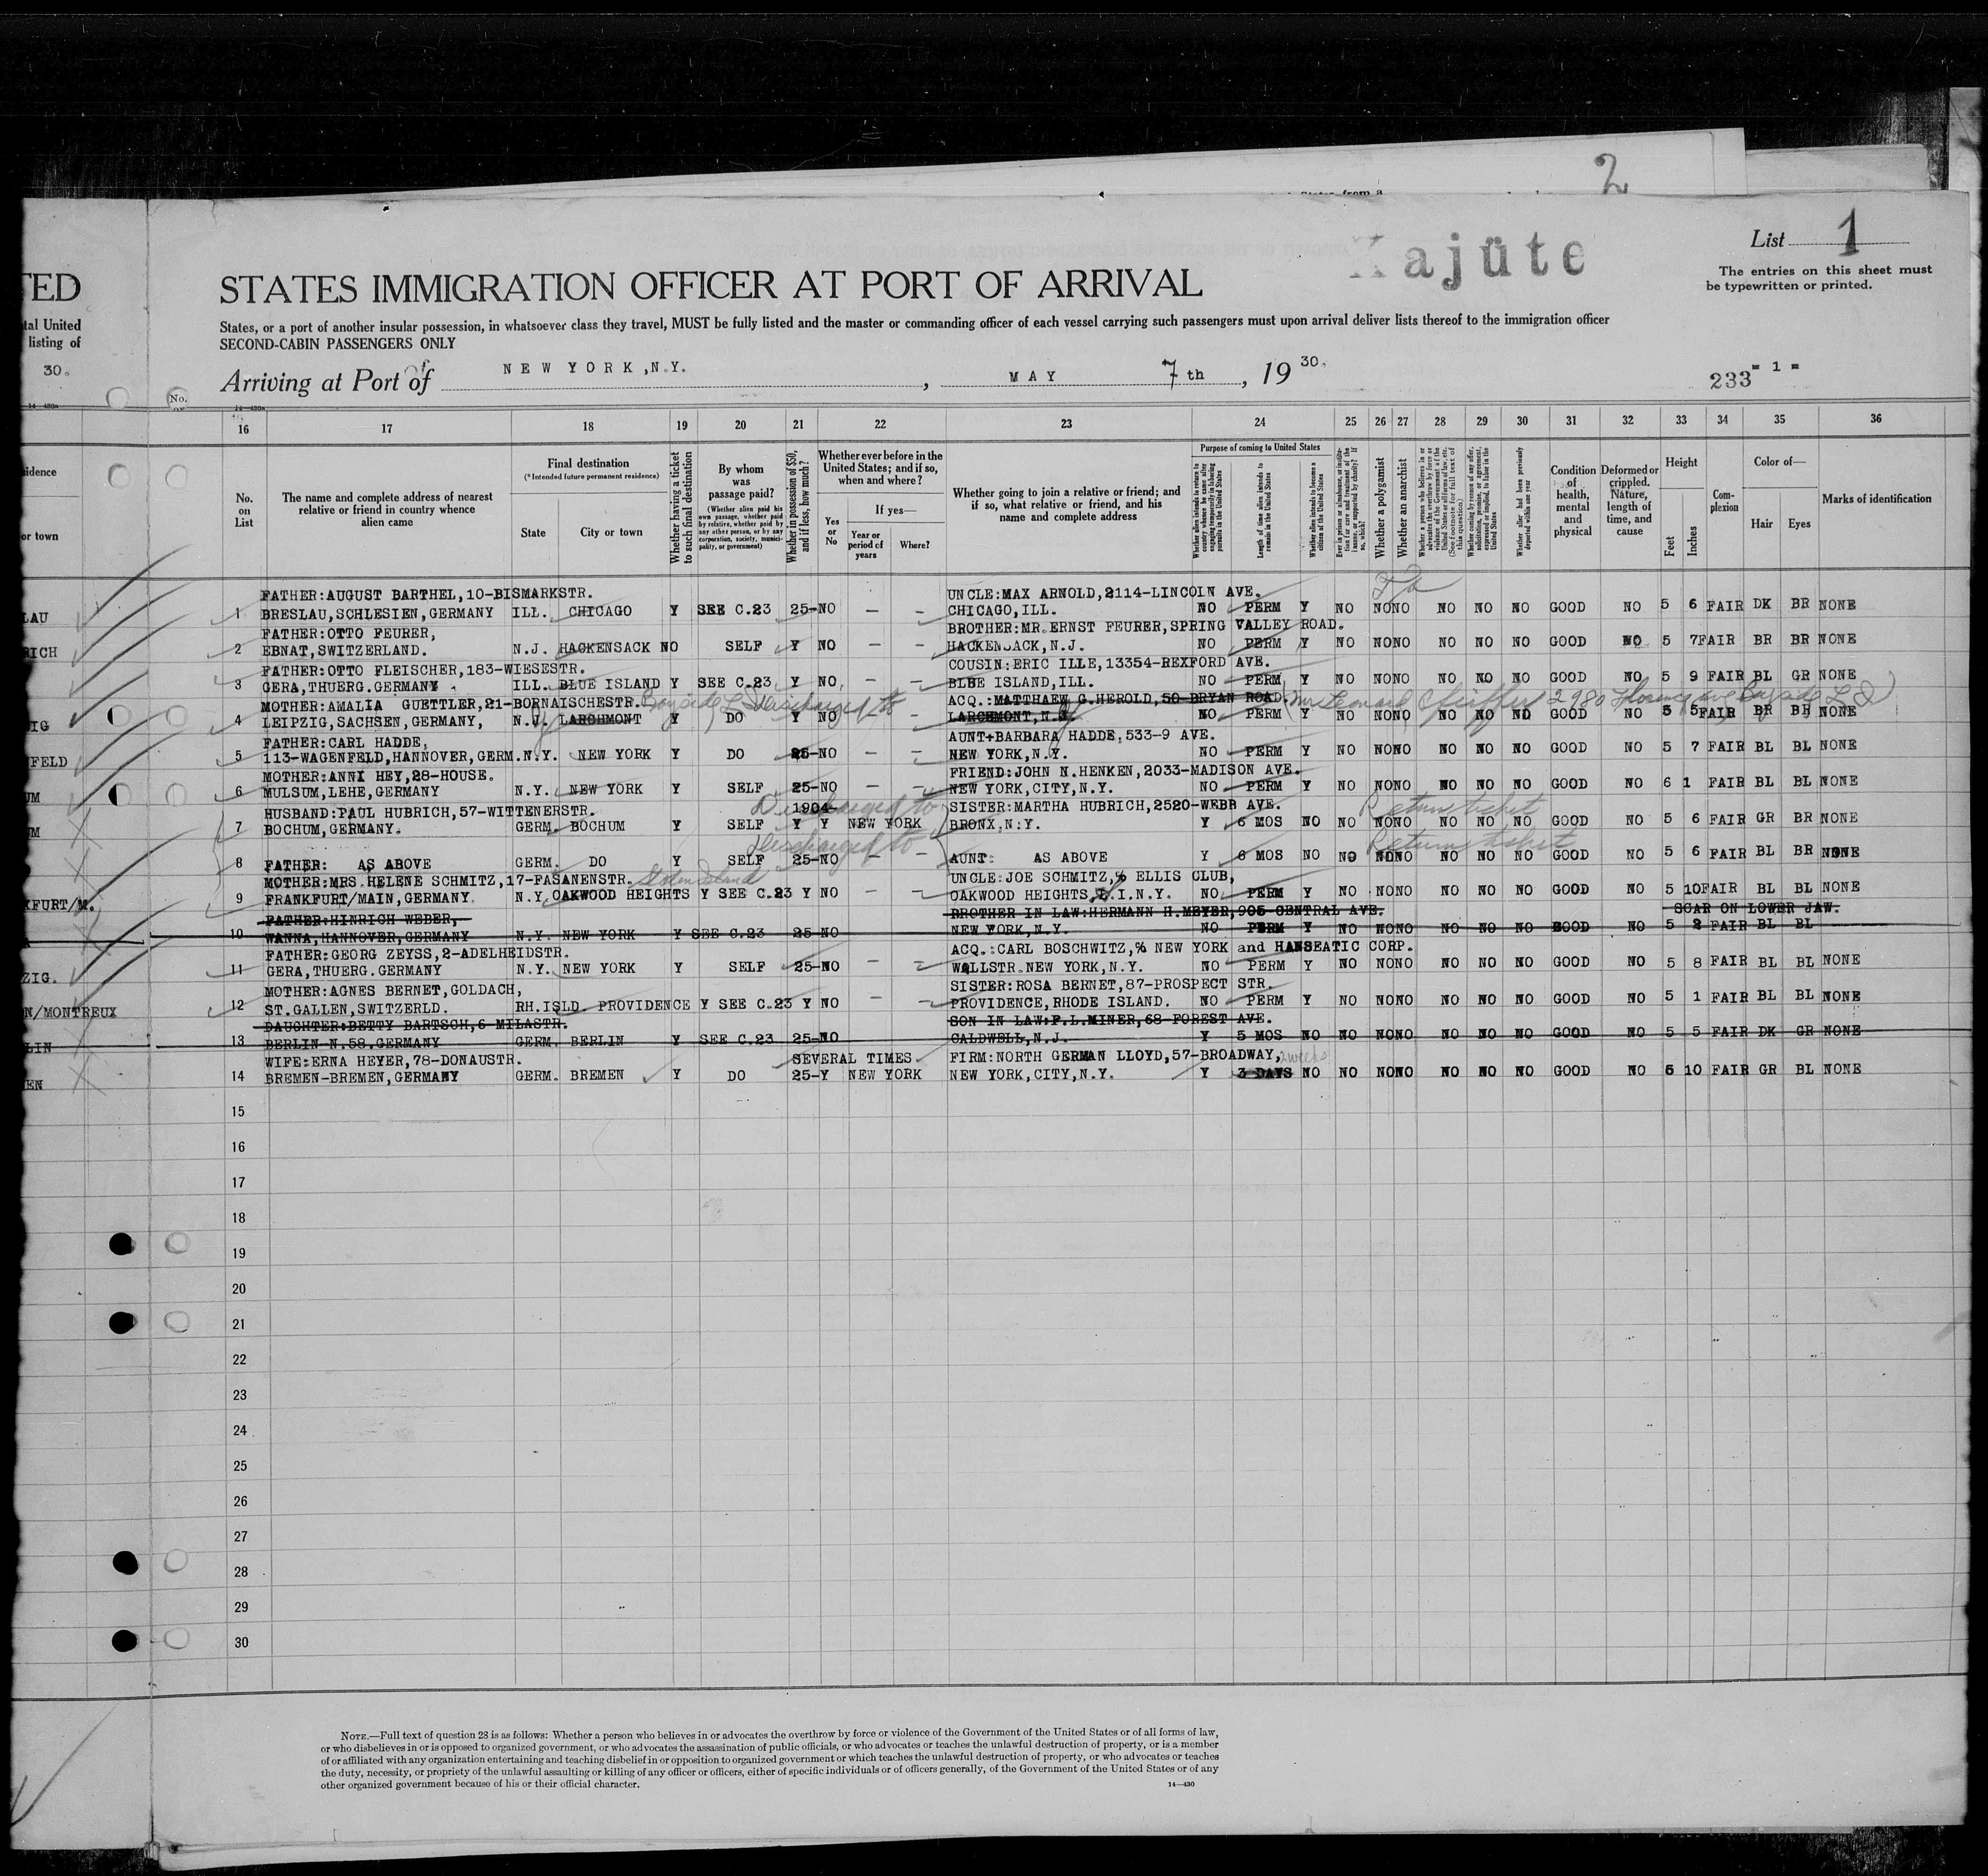 2
Kajüte
List 1
The entries on this sheet must
be typewritten or printed.
TED
STATES IMMIGRATION OFFICER AT PORT OF ARRIVAL
tal United
listing of
States, or a port of another insular possession, in whatsoever class they travel, MUST be fully listed and the master or commanding officer of each vessel carrying such passengers must upon arrival deliver lists thereof to the immigration officer
SECOND-CABIN PASSENGERS ONLY
30.
Arriving at Port of NEW YORK,N.Y. , MAY 7th , 19 30.
233 - 1 -
No.
16 17 18 19 20 21 22 23 24 25 26 27 28 29 30 31 32 33 34 35 36
No. on List
The name and complete address of nearest relative or friend in country whence alien came
Final destination
(*Intended future permanent residence)
State
City or town
Whether having a ticket to such final destination
By whom was passage paid?
(Whether alien paid his own passage, whether paid by relative, whether paid by any other person, or by any corporation, society, municipality, or government)
Whether in possession of $50, and if less, how much?
Whether ever before in the United States; and if so, when and where?
Yes or No
If yes—
Year or period of years
Where?
Whether going to join a relative or friend; and if so, what relative or friend, and his name and complete address
Purpose of coming to United States
Length of time alien intends to remain in the United States
Whether alien intends to become a citizen of the United States
Whether a polygamist
Whether an anarchist
Condition of health, mental and physical
Deformed or crippled. Nature, length of time, and cause
Height
Feet
Inches
Complexion
Color of—
Hair
Eyes
Marks of identification
FATHER:AUGUST BARTHEL,10-BISMARKSTR. UNCLE:MAX ARNOLD,2114-LINCOLN AVE.
LAU 1 BRESLAU,SCHLESIEN,GERMANY ILL. CHICAGO Y SEE C.23 25-NO — — CHICAGO,ILL. NO PERM Y NO NONO NO NO NO GOOD NO 5 6 FAIR DK BR NONE
FATHER:OTTO FEURER, BROTHER:MR.ERNST FEURER,SPRING VALLEY ROAD.
RICH 2 EBNAT,SWITZERLAND. N.J. HACKENSACK NO SELF Y NO — — HACKENSACK,N.J. NO PERM Y NO NONO NO NO NO GOOD NO 5 7FAIR BR BR NONE
FATHER:OTTO FLEISCHER,183-WIESESTR. COUSIN:ERIC ILLE,13354-REXFORD AVE.
3 GERA,THUERG.GERMANY ILL. BLUE ISLAND Y SEE C.23 Y NO — — BLUE ISLAND,ILL. NO PERM Y NO NONO NO NO NO GOOD NO 5 9 FAIR BL GR NONE
MOTHER:AMALIA GUETTLER,21-BORNAISCHESTR. Bayside L I discharged to ACQ.:MATTHAEW G.HEROLD,50-BRYAN ROAD. Mr Leonard 2980 Bayside L I
IG 4 LEIPZIG,SACHSEN,GERMANY, N.Y. LARCHMONT Y DO Y NO — — LARCHMONT,N.Y. NO PERM Y NO NONO NO NO NO GOOD NO 5 5FAIR BR BR NONE
FATHER:CARL HADDE, AUNT+BARBARA HADDE,533-9 AVE.
FELD 5 113-WAGENFELD,HANNOVER,GERM.N.Y. NEW YORK Y DO 25-NO — — NEW YORK,N.Y. NO PERM Y NO NONO NO NO NO GOOD NO 5 7 FAIR BL BL NONE
MOTHER:ANNI HEY,28-HOUSE. FRIEND:JOHN N.HENKEN,2033-MADISON AVE.
UM 6 MULSUM,LEHE,GERMANY N.Y. NEW YORK Y SELF 25-NO — — NEW YORK,CITY,N.Y. NO PERM Y NO NONO NO NO NO GOOD NO 6 1 FAIR BL BL NONE
HUSBAND:PAUL HUBRICH,57-WITTENERSTR. Discharged to 1904- SISTER:MARTHA HUBRICH,2520-WEBB AVE. Return ticket
UM 7 BOCHUM,GERMANY. GERM. BOCHUM Y SELF Y Y NEW YORK BRONX.N.Y. Y 6 MOS NO NO NONO NO NO NO GOOD NO 5 6 FAIR GR BR NONE
Discharged to Return ticket
8 FATHER: AS ABOVE GERM. DO Y SELF 25-NO — — AUNT: AS ABOVE Y 6 MOS NO NO NONO NO NO NO GOOD NO 5 6 FAIR BL BR NONE
MOTHER:MRS.HELENE SCHMITZ,17-FASANENSTR. Staten Island UNCLE:JOE SCHMITZ,% ELLIS CLUB,
KFURT/M. 9 FRANKFURT/MAIN,GERMANY. N.Y. OAKWOOD HEIGHTS Y SEE C.23 Y NO — — OAKWOOD HEIGHTS,S.I.N.Y. NO PERM Y NO NONO NO NO NO GOOD NO 5 10FAIR BL BL NONE
FATHER:HINRICH WEBER, BROTHER IN LAW:HERMANN H.MEYER,905-CENTRAL AVE. SCAR ON LOWER JAW.
10 WANNA,HANNOVER,GERMANY N.Y. NEW YORK Y SEE C.23 25-NO NEW YORK,N.Y. NO PERM Y NO NONO NO NO NO GOOD NO 5 2 FAIR BL BL
FATHER:GEORG ZEYSS,2-ADELHEIDSTR. ACQ.:CARL BOSCHWITZ,% NEW YORK and HANSEATIC CORP.
ZIG. 11 GERA,THUERG.GERMANY N.Y. NEW YORK Y SELF 25-NO — — WALLSTR.NEW YORK,N.Y. NO PERM Y NO NONO NO NO NO GOOD NO 5 8 FAIR BL BL NONE
MOTHER:AGNES BERNET,GOLDACH, SISTER:ROSA BERNET,87-PROSPECT STR.
N/MONTREUX 12 ST.GALLEN,SWITZERLD. RH.ISLD. PROVIDENCE Y SEE C.23 Y NO — — PROVIDENCE,RHODE ISLAND. NO PERM Y NO NONO NO NO NO GOOD NO 5 1 FAIR BL BL NONE
DAUGHTER:BETTY BARTSCH,6-MILASTR. SON IN LAW:F.L.MINER,68-FOREST AVE.
LIN 13 BERLIN-N.58.GERMANY GERM. BERLIN Y SEE C.23 25-NO CALDWELL,N.J. Y 5 MOS NO NO NONO NO NO NO GOOD NO 5 5 FAIR DK GR NONE
WIFE:ERNA HEYER,78-DONAUSTR. SEVERAL TIMES FIRM:NORTH GERMAN LLOYD,57-BROADWAY, 2 weeks
EN 14 BREMEN-BREMEN,GERMANY GERM. BREMEN Y DO 25-Y NEW YORK NEW YORK,CITY,N.Y. Y 3 DAYS NO NO NONO NO NO NO GOOD NO 5 10 FAIR GR BL NONE
15
16
17
18
19
20
21
22
23
24
25
26
27
28
29
30
NOTE.—Full text of question 28 is as follows: Whether a person who believes in or advocates the overthrow by force or violence of the Government of the United States or of all forms of law,
or who disbelieves in or is opposed to organized government, or who advocates the assassination of public officials, or who advocates or teaches the unlawful destruction of property, or is a member
of or affiliated with any organization entertaining and teaching disbelief in or opposition to organized government or which teaches the unlawful destruction of property, or who advocates or teaches
the duty, necessity, or propriety of the unlawful assaulting or killing of any officer or officers, either of specific individuals or of officers generally, of the Government of the United States or of any
other organized government because of his or their official character.
14—430